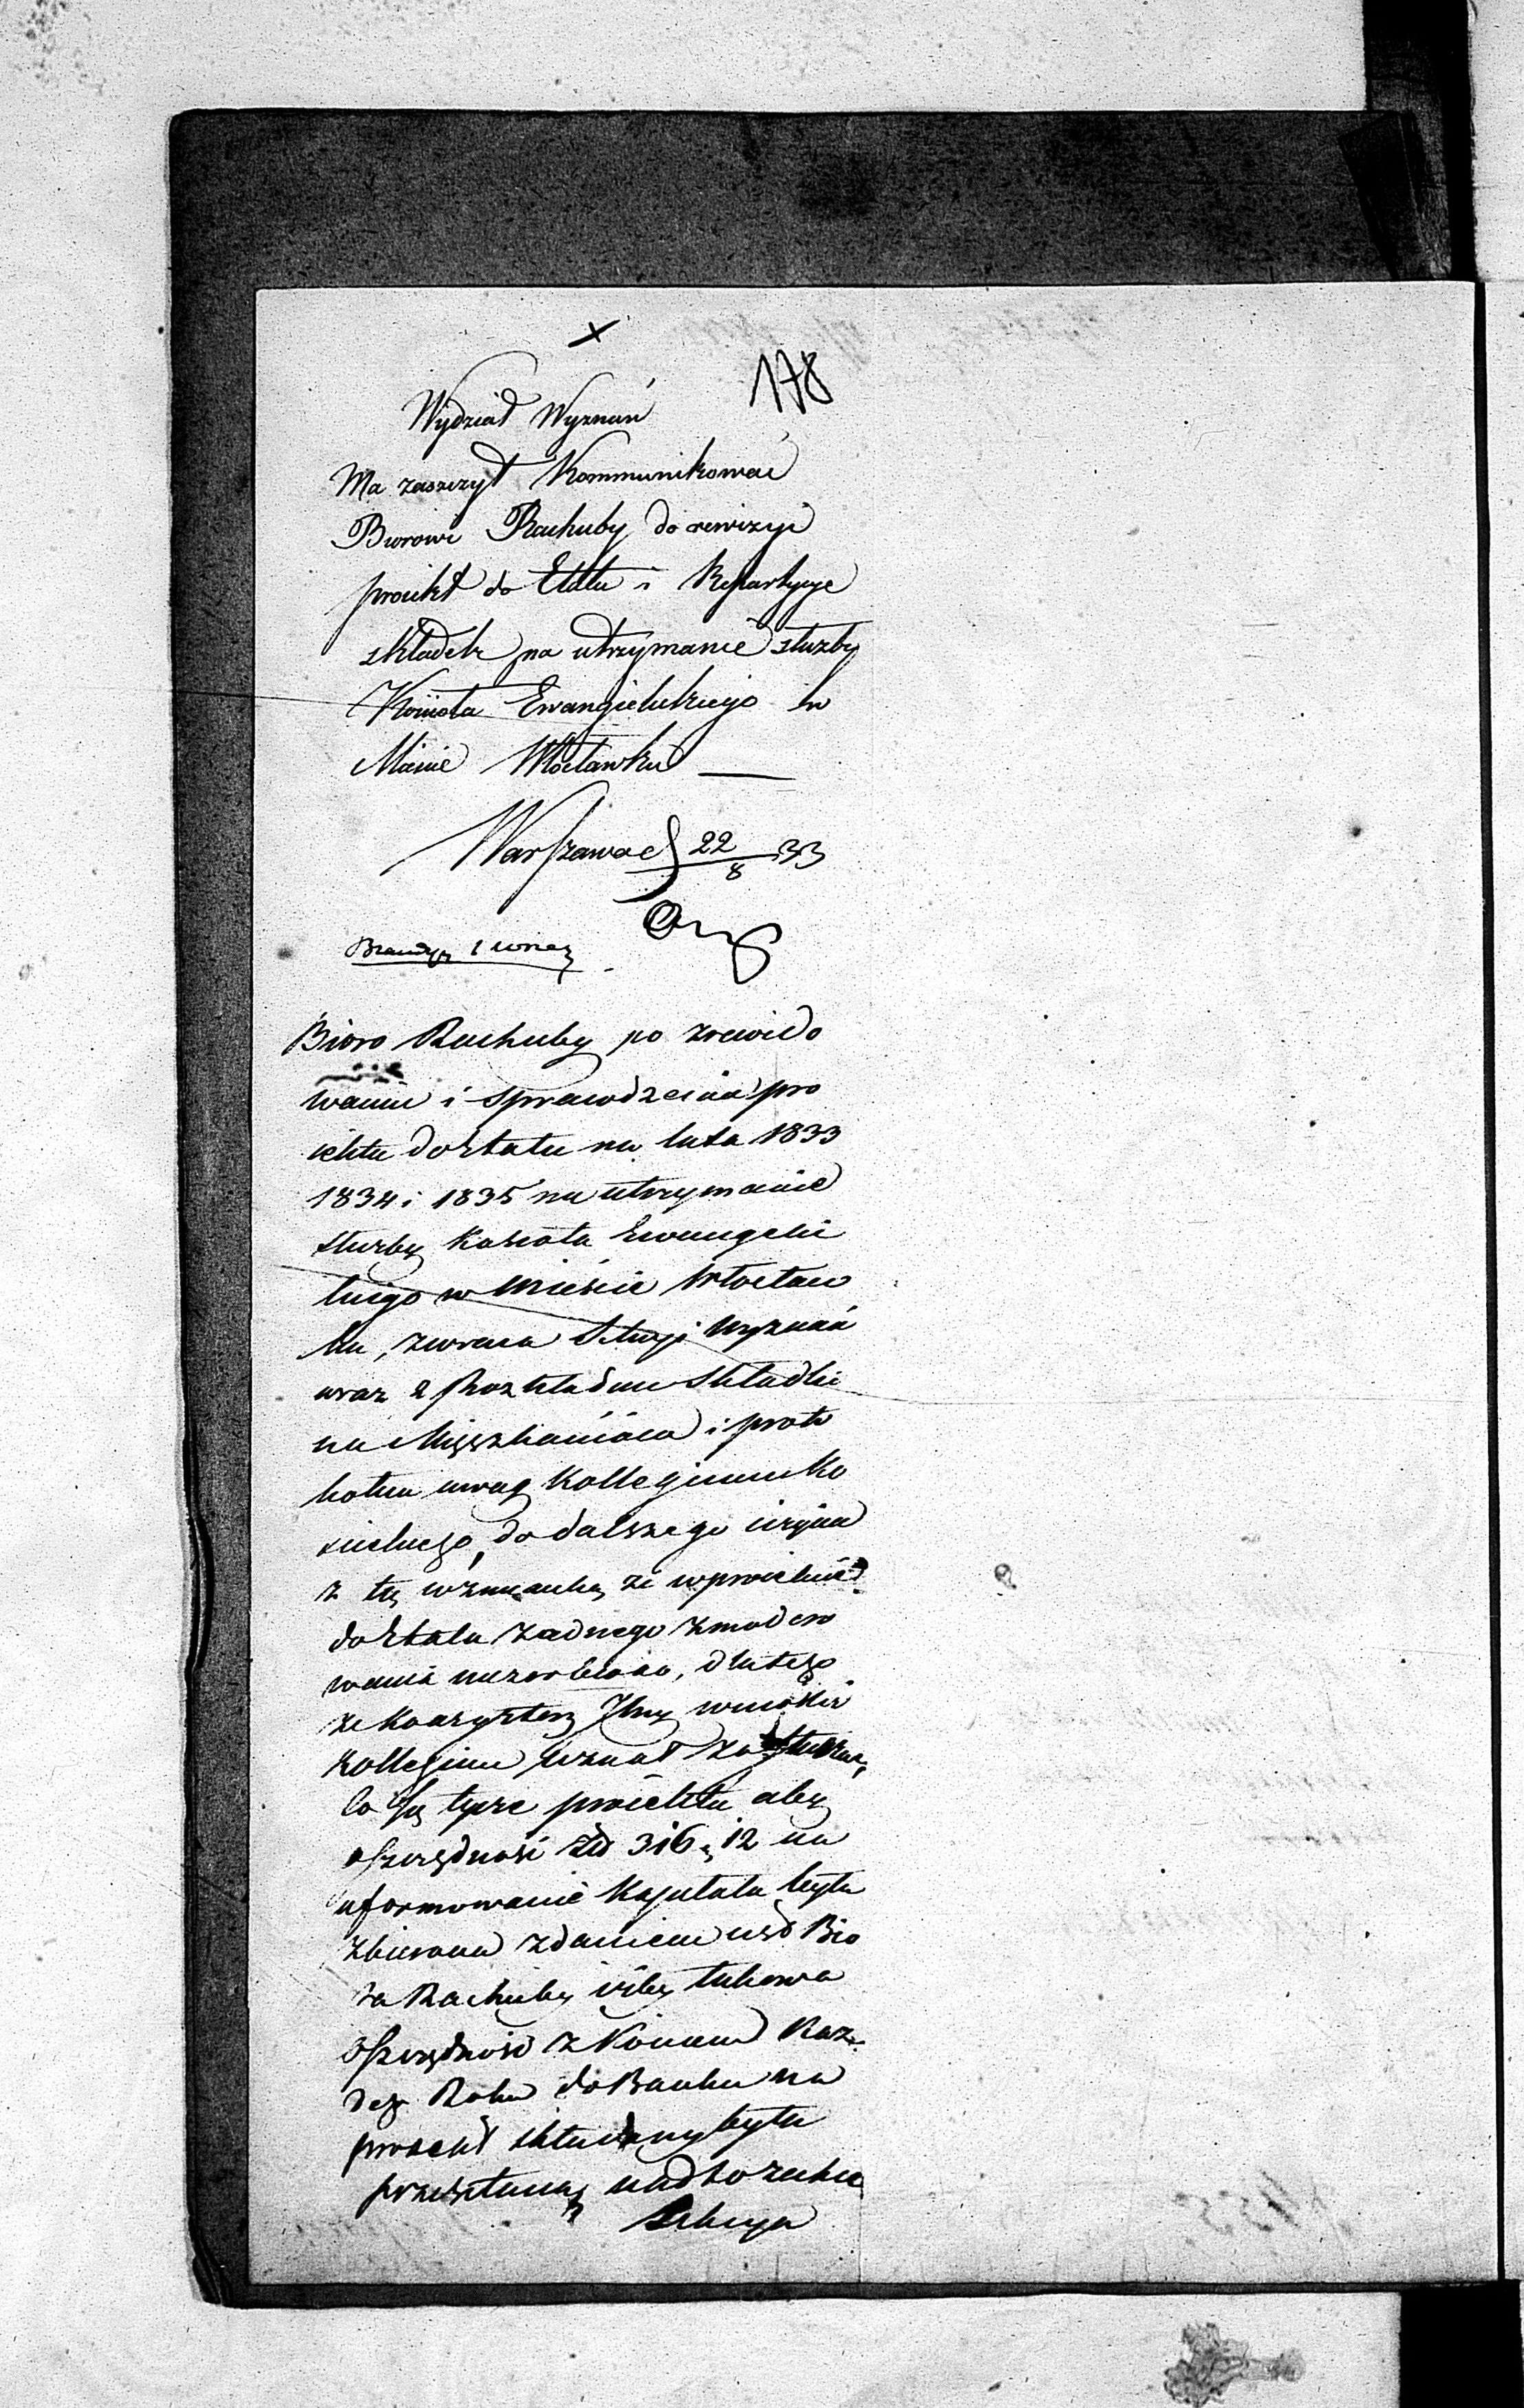 178
Wydział Wyznań
Ma zaszczyt Kommunikować
Biurowi Rachuby do rewizyi
proiekt do Etatu i Repartycye
składek na utrzymanie służby
Kościoła Ewangielickiego w
Mieście Włocławku
Warszawa d 22/8 33
Bioro Rachuby po zrewido
waniu i sprawdzeniu pro
iektu do Etatu na lata 1833
1834 i 1835 na utrzymanie
służby Kościoła Ewangeli
ckiego w Mieście Włocław
ku, zwraca Sekcyi Wyznań
wraz z Rozkładem Składki
na Mieszkańców i proto
kołem uwag Kollegium Ko
ścielnego, do dalszego użycia
z tą wzmianką że w proiekcie
do Etatu żadnego zmodero
wania nie zrobiono, dlatego
że Konsystorz Jlny wnioski
Kollegium uznał za słuszne,
Co się tycze proiektu aby
oszczędność Złp 316 g 12 na
uformowanie Kapitału była
zbierana zdaniem iest Bio
ra Rachuby iżby takowa
oszczędność z Końcem Każ
dego Roku do Banku na
procent składany była
przesłaną nad to zechce
Sekcya